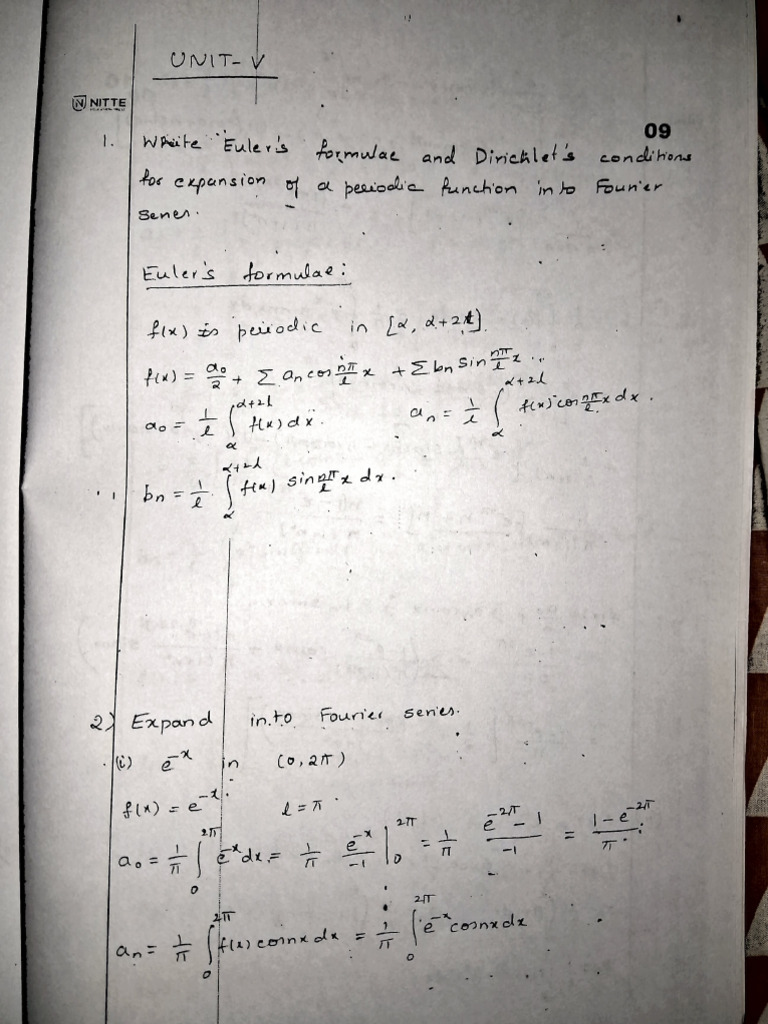 UNIT-V
NITTE
09
1. Write Euler's formulae and Dirichlet's conditions
for expansion of a periodic function into Fourier
Series.
Euler's formulae:
f(x) is periodic in [α, α+2l].
f(x) = a₀/2 + Σ aₙ cos nπ/l x + Σ bₙ sin nπ/l x ..
a₀ = 1/l ∫_α^{α+2l} f(x) dx. aₙ = 1/l ∫_α^{α+2l} f(x) cos nπ/l x dx.
bₙ = 1/l ∫_α^{α+2l} f(x) sin nπ/l x dx.
2) Expand into Fourier series.
(i) e^{-x} in (0, 2π)
f(x) = e^{-x}. l = π
a₀ = 1/π ∫_0^{2π} e^{-x} dx = 1/π e^{-x}/-1 |_0^{2π} = 1/π (e^{-2π} - 1)/-1 = (1 - e^{-2π})/π
aₙ = 1/π ∫_0^{2π} f(x) cosnx dx = 1/π ∫_0^{2π} e^{-x} cosnx dx